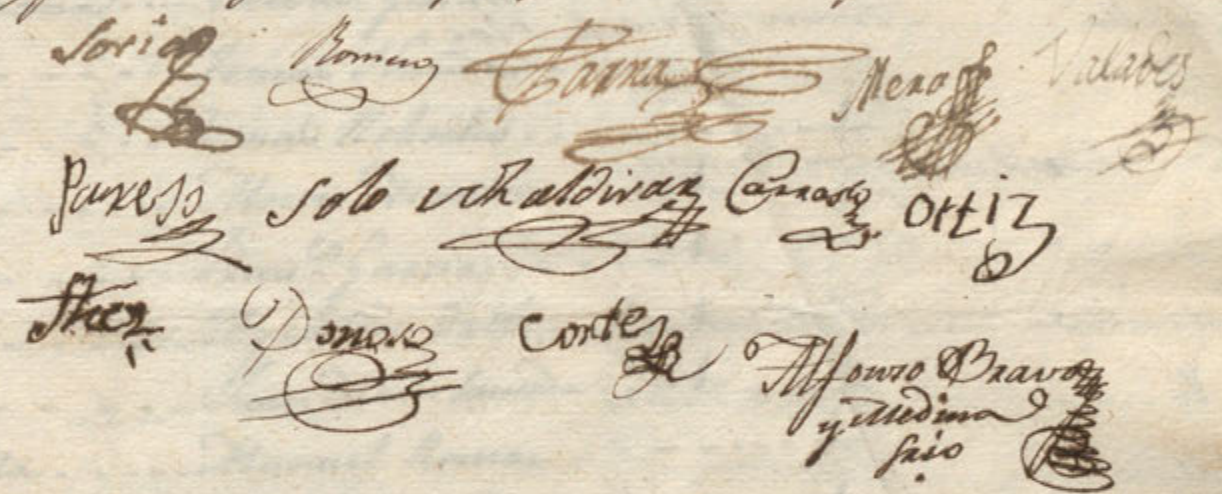 Soria Romero Parra Mera Valades
Parexo Solo de Zaldivar Carrasco Ortiz
Donoso Cortes
Alfonso Bravo
y Medina
ssrio